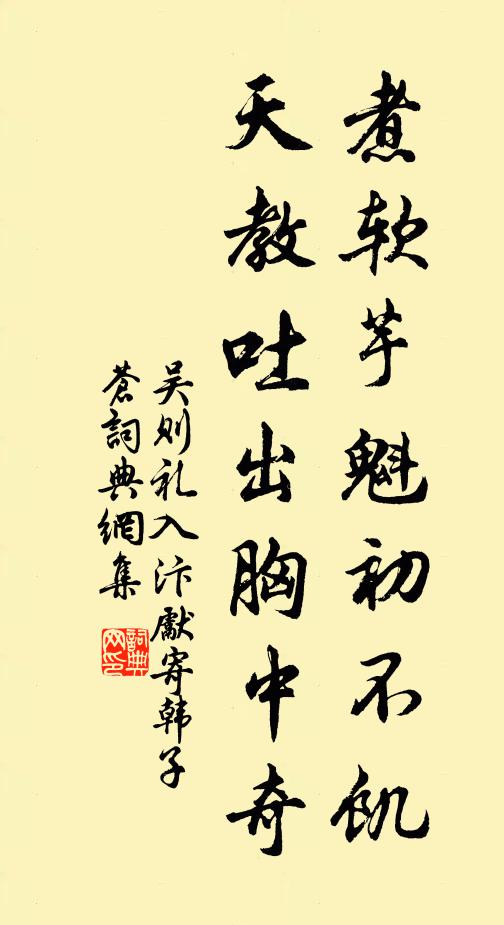 煮软芋魁初不飢
天教吐出胸中奇
吴则礼入汴獻寄韩子
蒼詞典網集
詞典网印